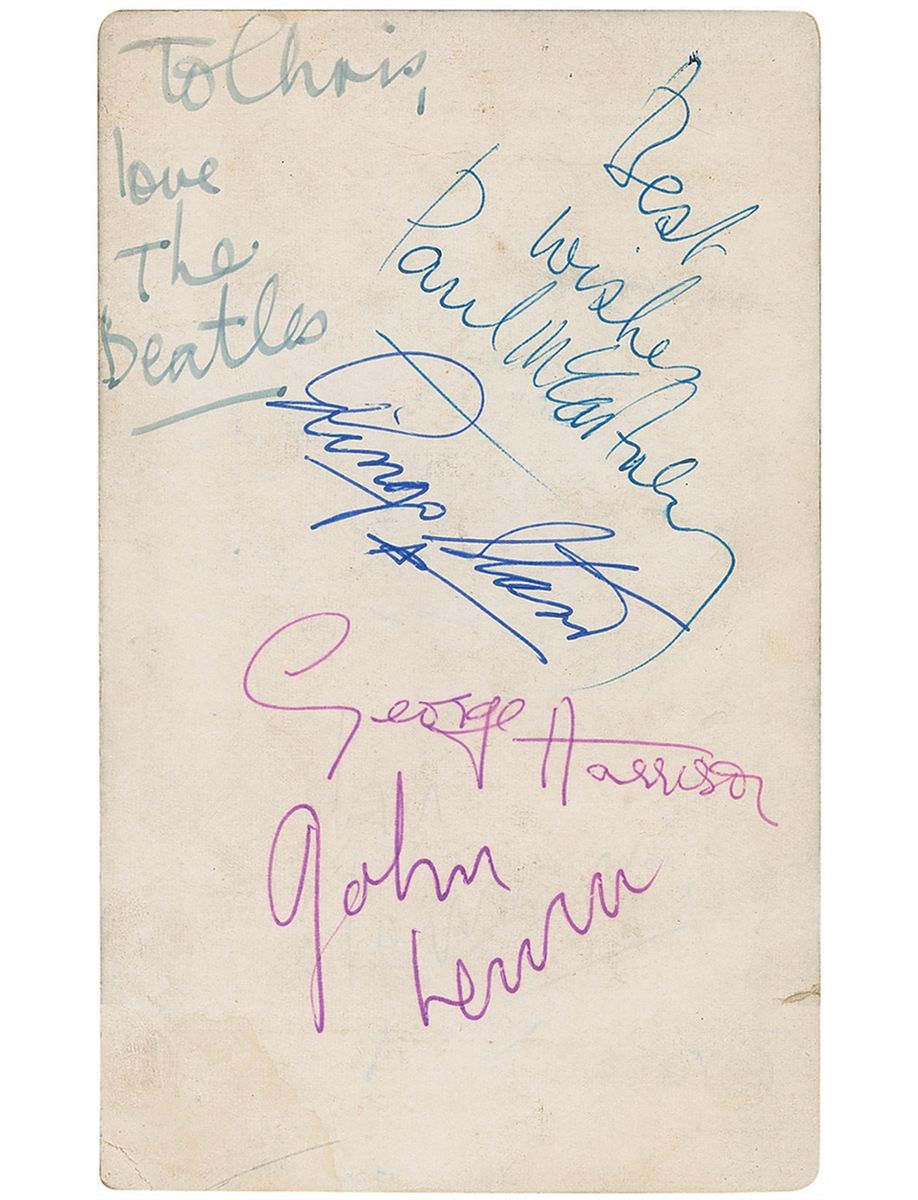 To Chris,
love
The
Beatles
Best
wishes
Paul McCartney
Ringo Starr
George Harrison
John
Lennon